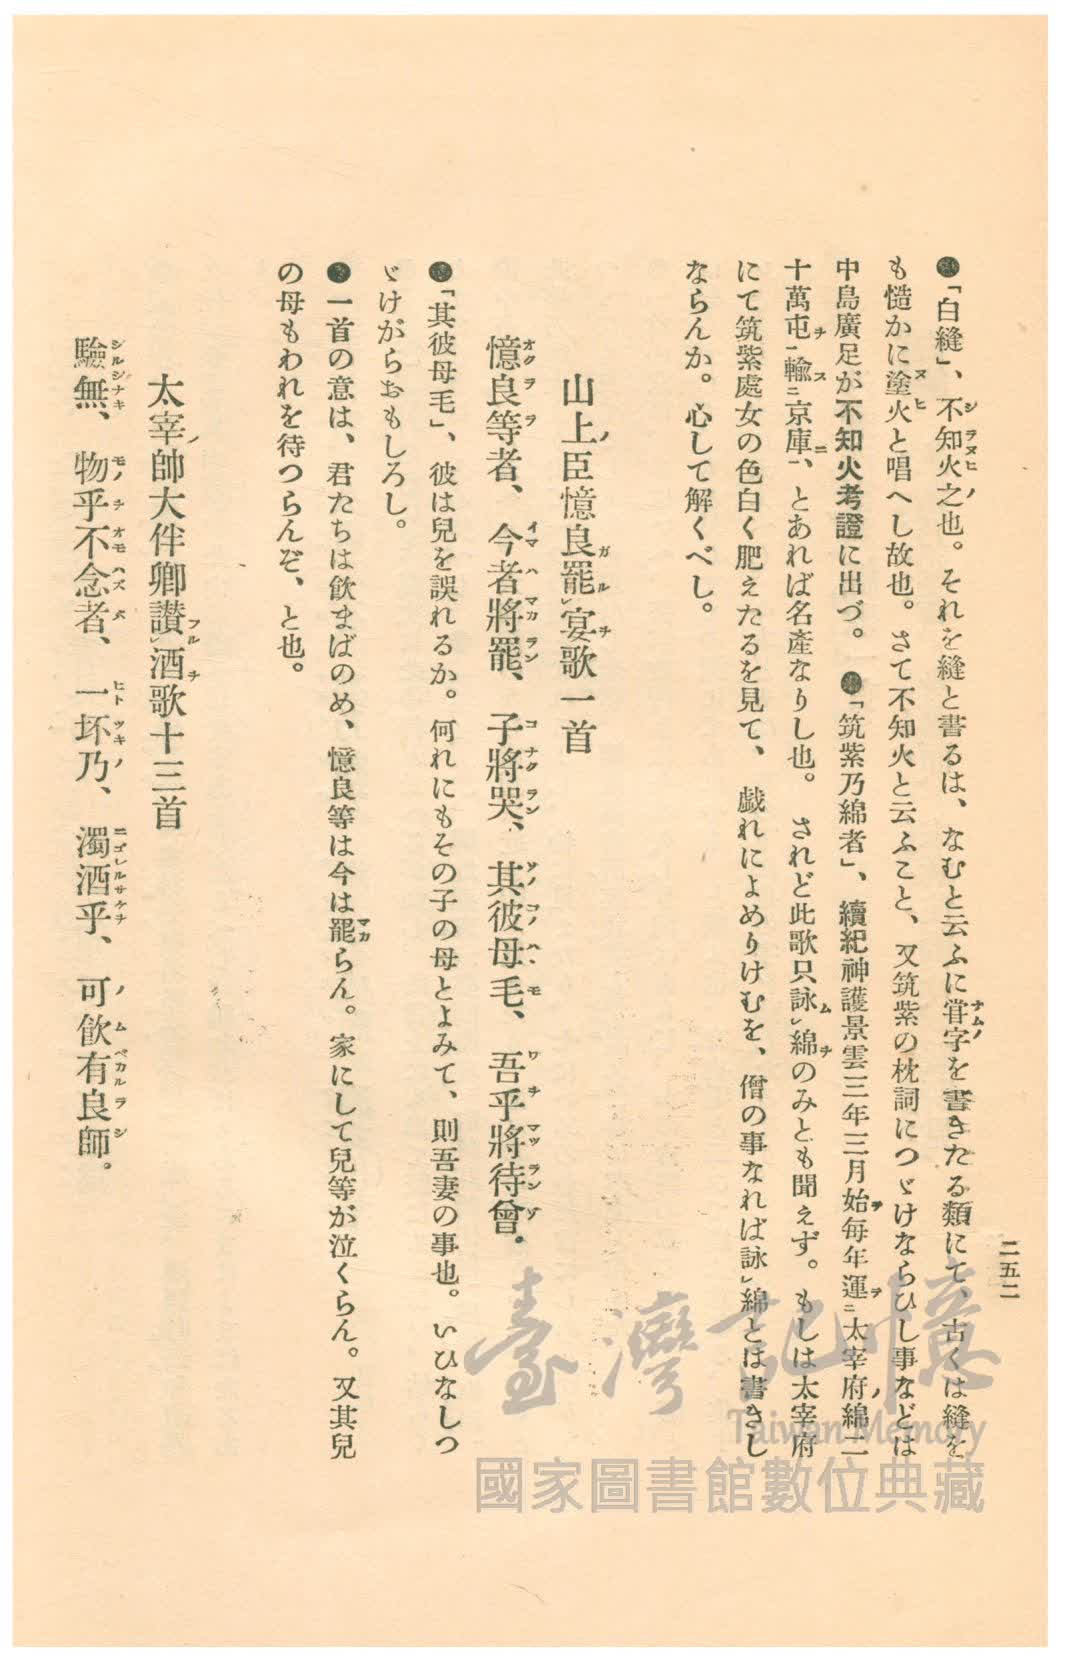 二五二
●「白縫」、不知火之也。それを縫と書るは、なむと云ふに甞字を書きたる類にて、古くは縫を
も慥かに塗火と唱へし故也。さて不知火と云ふこと、又筑紫の枕詞につゞけならひし事などは
中島廣足が不知火考證に出づ。●「筑紫乃綿者」、續紀神護景雲三年三月始毎年運太宰府綿二
十萬屯輸京庫、とあれば名產なりし也。されど此歌只詠綿のみとも聞えず。もしは太宰府
にて筑紫處女の色白く肥えたるを見て、戯れによめりけむを、僧の事なれば詠綿とは書きし
ならんか。心して解くべし。
山上臣憶良罷宴歌一首
憶良等者、今者將罷、子將哭、其彼母毛、吾乎將待曾。
●「其彼母毛」、彼は兒を誤れるか。何れにもその子の母とよみて、則吾妻の事也。いひなしつ
ゞけがらおもしろし。
●一首の意は、君たちは飲まばのめ、憶良等は今は罷らん。家にして兒等が泣くらん。又其兒
の母もわれを待つらんぞ、と也。
太宰帥大伴卿讃酒歌十三首
驗無、物乎不念者、一坏乃、濁酒乎、可飲有良師。
臺灣記憶
Taiwan Memory
國家圖書館數位典藏